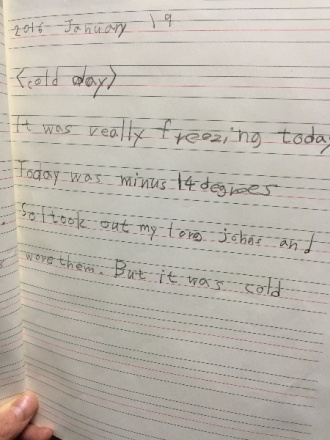 2016 January 19
<cold day>
It was really freezing today
Today was minus 14 degrees
So I took out my long johns and
wore them. But it was cold